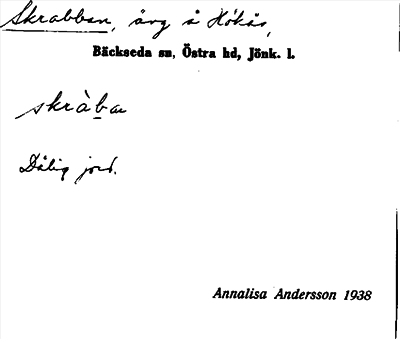 Skrabban, äng å Hökås,
Bäckseda sn, Östra hd, Jönk. l.
skràba
Dålig jord.
Annalisa Andersson 1938